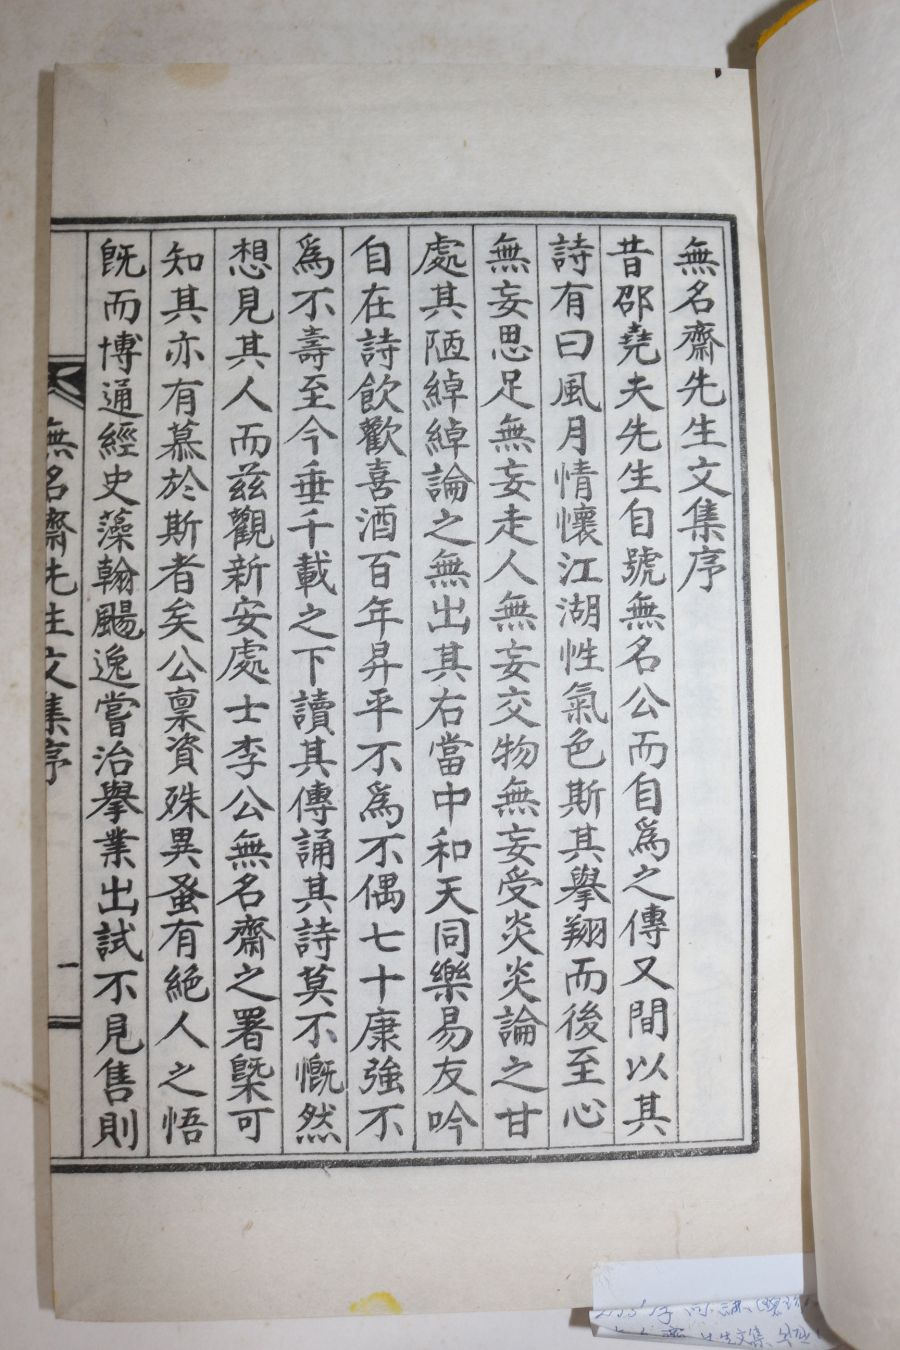 無名齋先生文集序
昔邵堯夫先生自號無名公而自爲之傳又間以其
詩有曰風月情懷江湖性氣色斯其擧翔而後至心
無妄思足無妄走人無妄交物無妄受炎炎論之甘
處其陋綽綽論之無出其右當中和天同樂易友吟
自在詩飮歡喜酒百年昇平不爲不偶七十康強不
爲不壽至今垂千載之下讀其傳誦其詩莫不慨然
想見其人而兹觀新安處士李公無名齋之署槩可
知其亦有慕於斯者矣公禀資殊異蚤有絕人之悟
旣而博通經史藻翰颺逸嘗治擧業出試不見售則
無名齋先生文集序
一